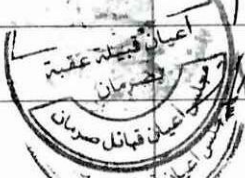 أعيان قبيلة عقبة
بصرمان
مجلس أعيان قبائل صرمان